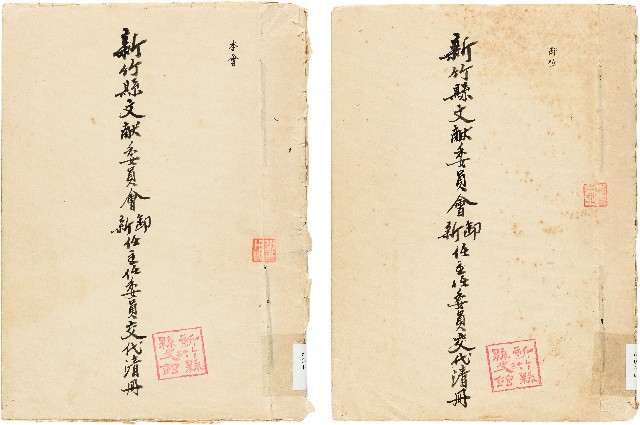 本會
新竹縣文献委員會卸新任主任委員交代清冊
新竹縣縣史館
新竹縣文献委員會卸新任主任委員交代清冊
新竹縣縣史館